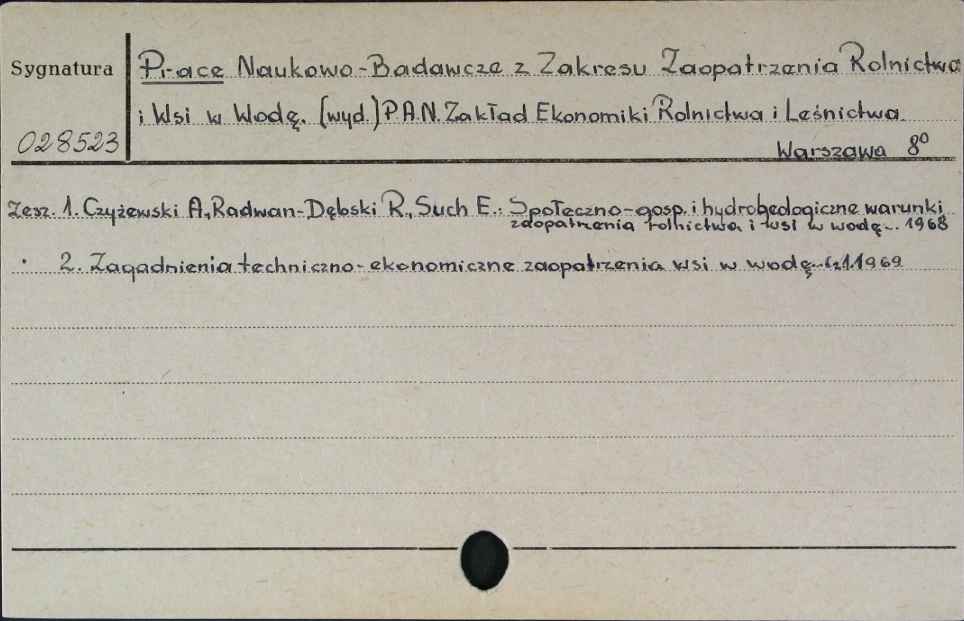 Sygnatura
Prace Naukowo-Badawcze z Zakresu Zaopatrzenia Rolnictwa
i Wsi w Wodę. [wyd.] P.A.N. Zakład Ekonomiki Rolnictwa i Leśnictwa.
028523
Warszawa 8°
Zesz. 1. Czyżewski A., Radwan-Dębski R., Such E.: Społeczno-gosp. i hydrogeologiczne warunki
zaopatrzenia rolnictwa i wsi w wodę.. 1968
2. Zagadnienia techniczno-ekonomiczne zaopatrzenia wsi w wodę.. Cz.1. 1969